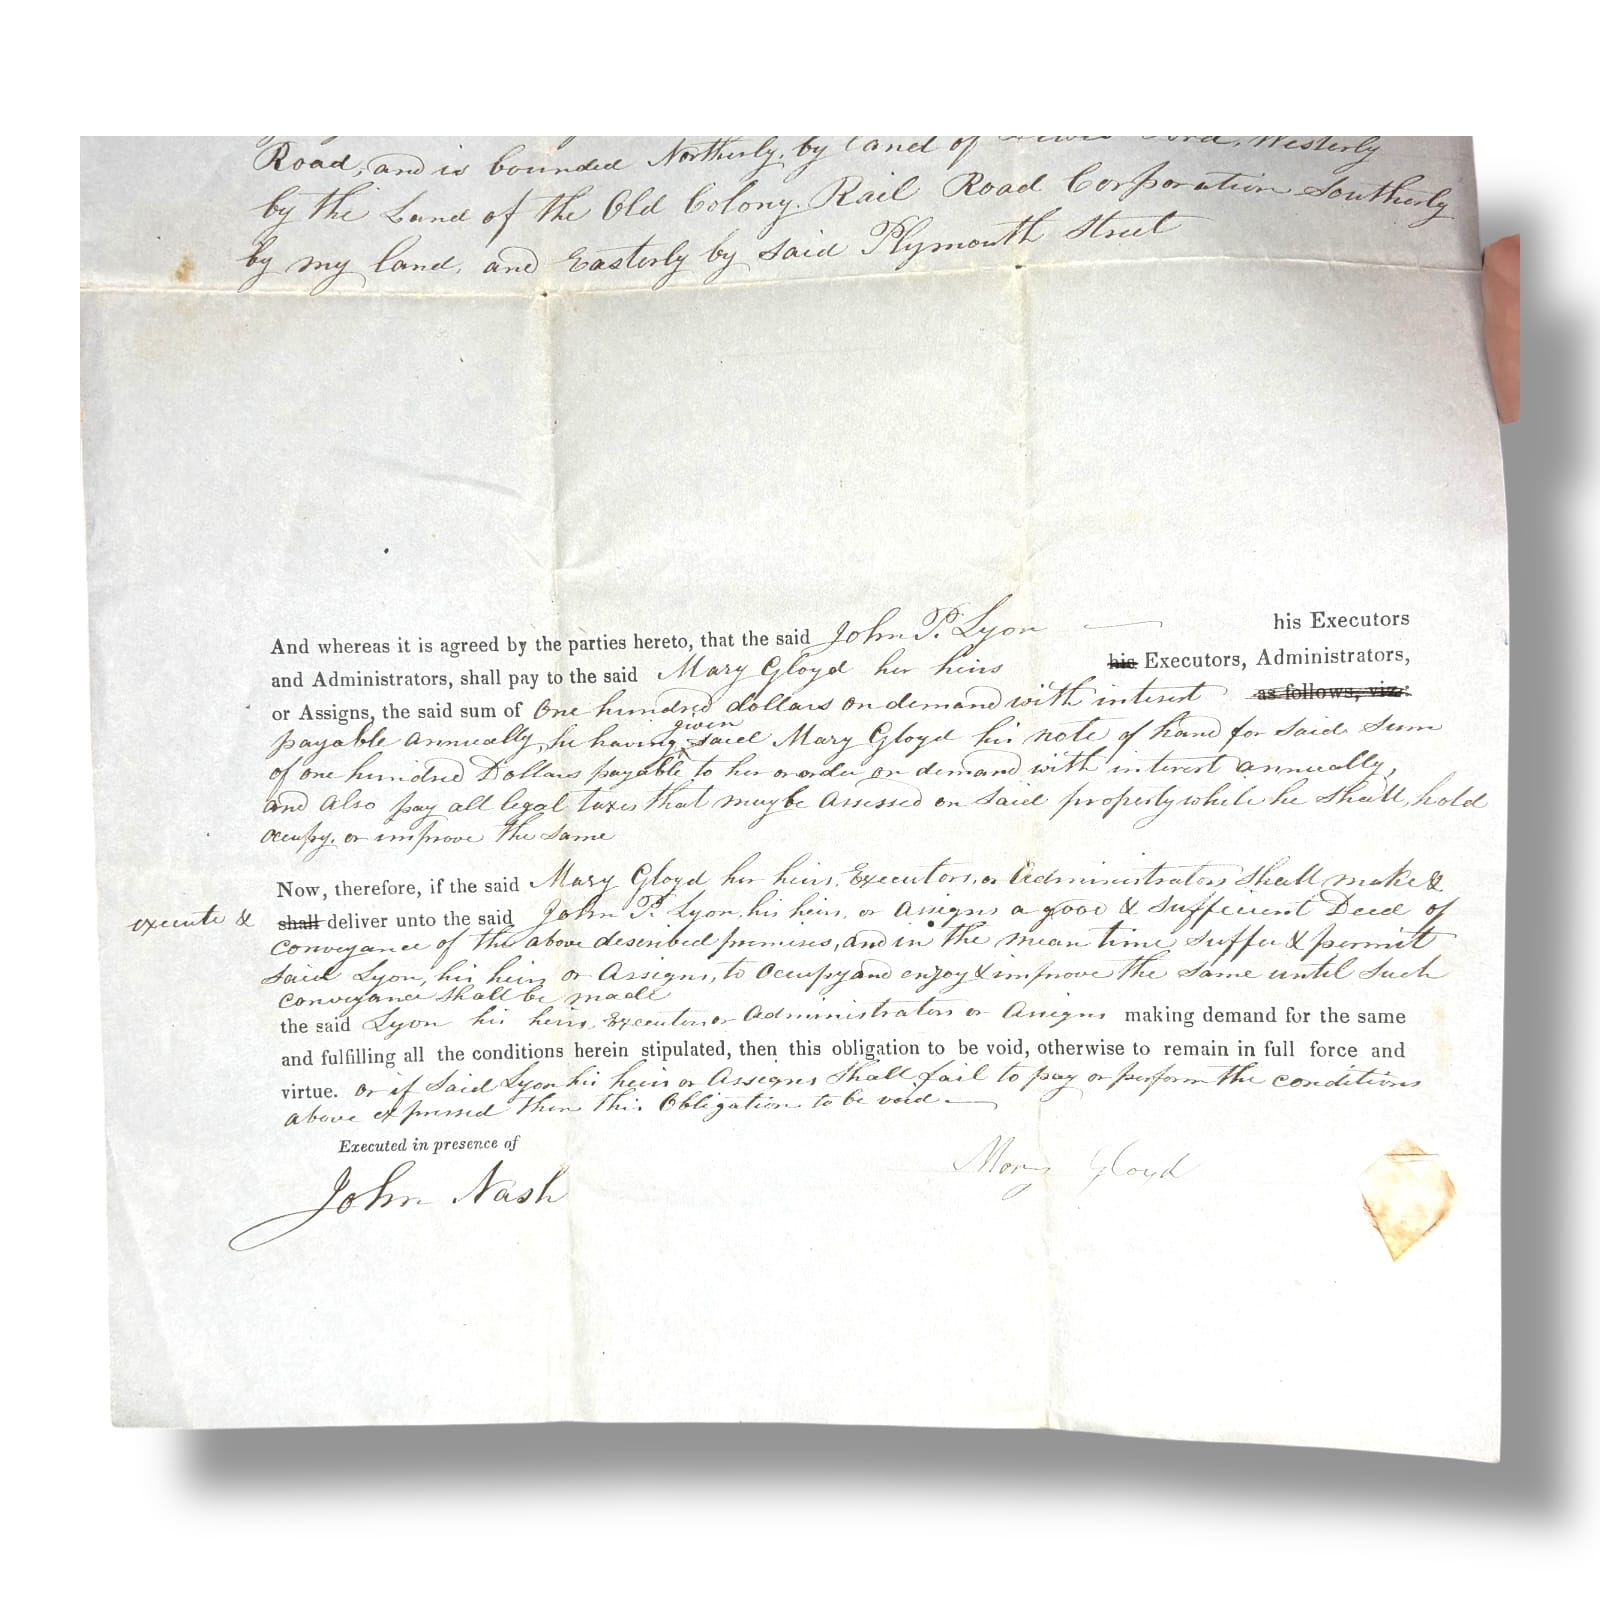 Road, and is bounded Northerly, by land of Lewis Ford, Westerly
by the Land of the Old Colony Rail Road Corporation Southerly
by my land, and Easterly by said Plymouth Street
And whereas it is agreed by the parties hereto, that the said John P. Lyon his Executors
and Administrators, shall pay to the said Mary Gloyd her heirs his Executors, Administrators,
or Assigns, the said sum of One hundred dollars on demand with interest as follows, viz:
given
payable annually, he having said Mary Gloyd his note of hand for said sum
of one hundred Dollars payable to her or order on demand with interest annually,
and also pay all legal taxes that may be assessed on said property while he shall, hold
occupy, or improve the same
Now, therefore, if the said Mary Gloyd her heirs, Executors, or Administrators shall make &
execute & shall deliver unto the said John P. Lyon, his heirs, or Assigns a good & sufficient Deed of
conveyance of the above described premises, and in the mean time suffer & permit
said Lyon, his heirs or Assigns, to occupy and enjoy & improve the same until such
conveyance shall be made
the said Lyon his heirs, Executors or Administrators or Assigns making demand for the same
and fulfilling all the conditions herein stipulated, then this obligation to be void, otherwise to remain in full force and
virtue. or if said Lyon his heirs or Assigns shall fail to pay or perform the conditions
above expressed then this Obligation to be void.
Executed in presence of
John Nash
Mary Gloyd